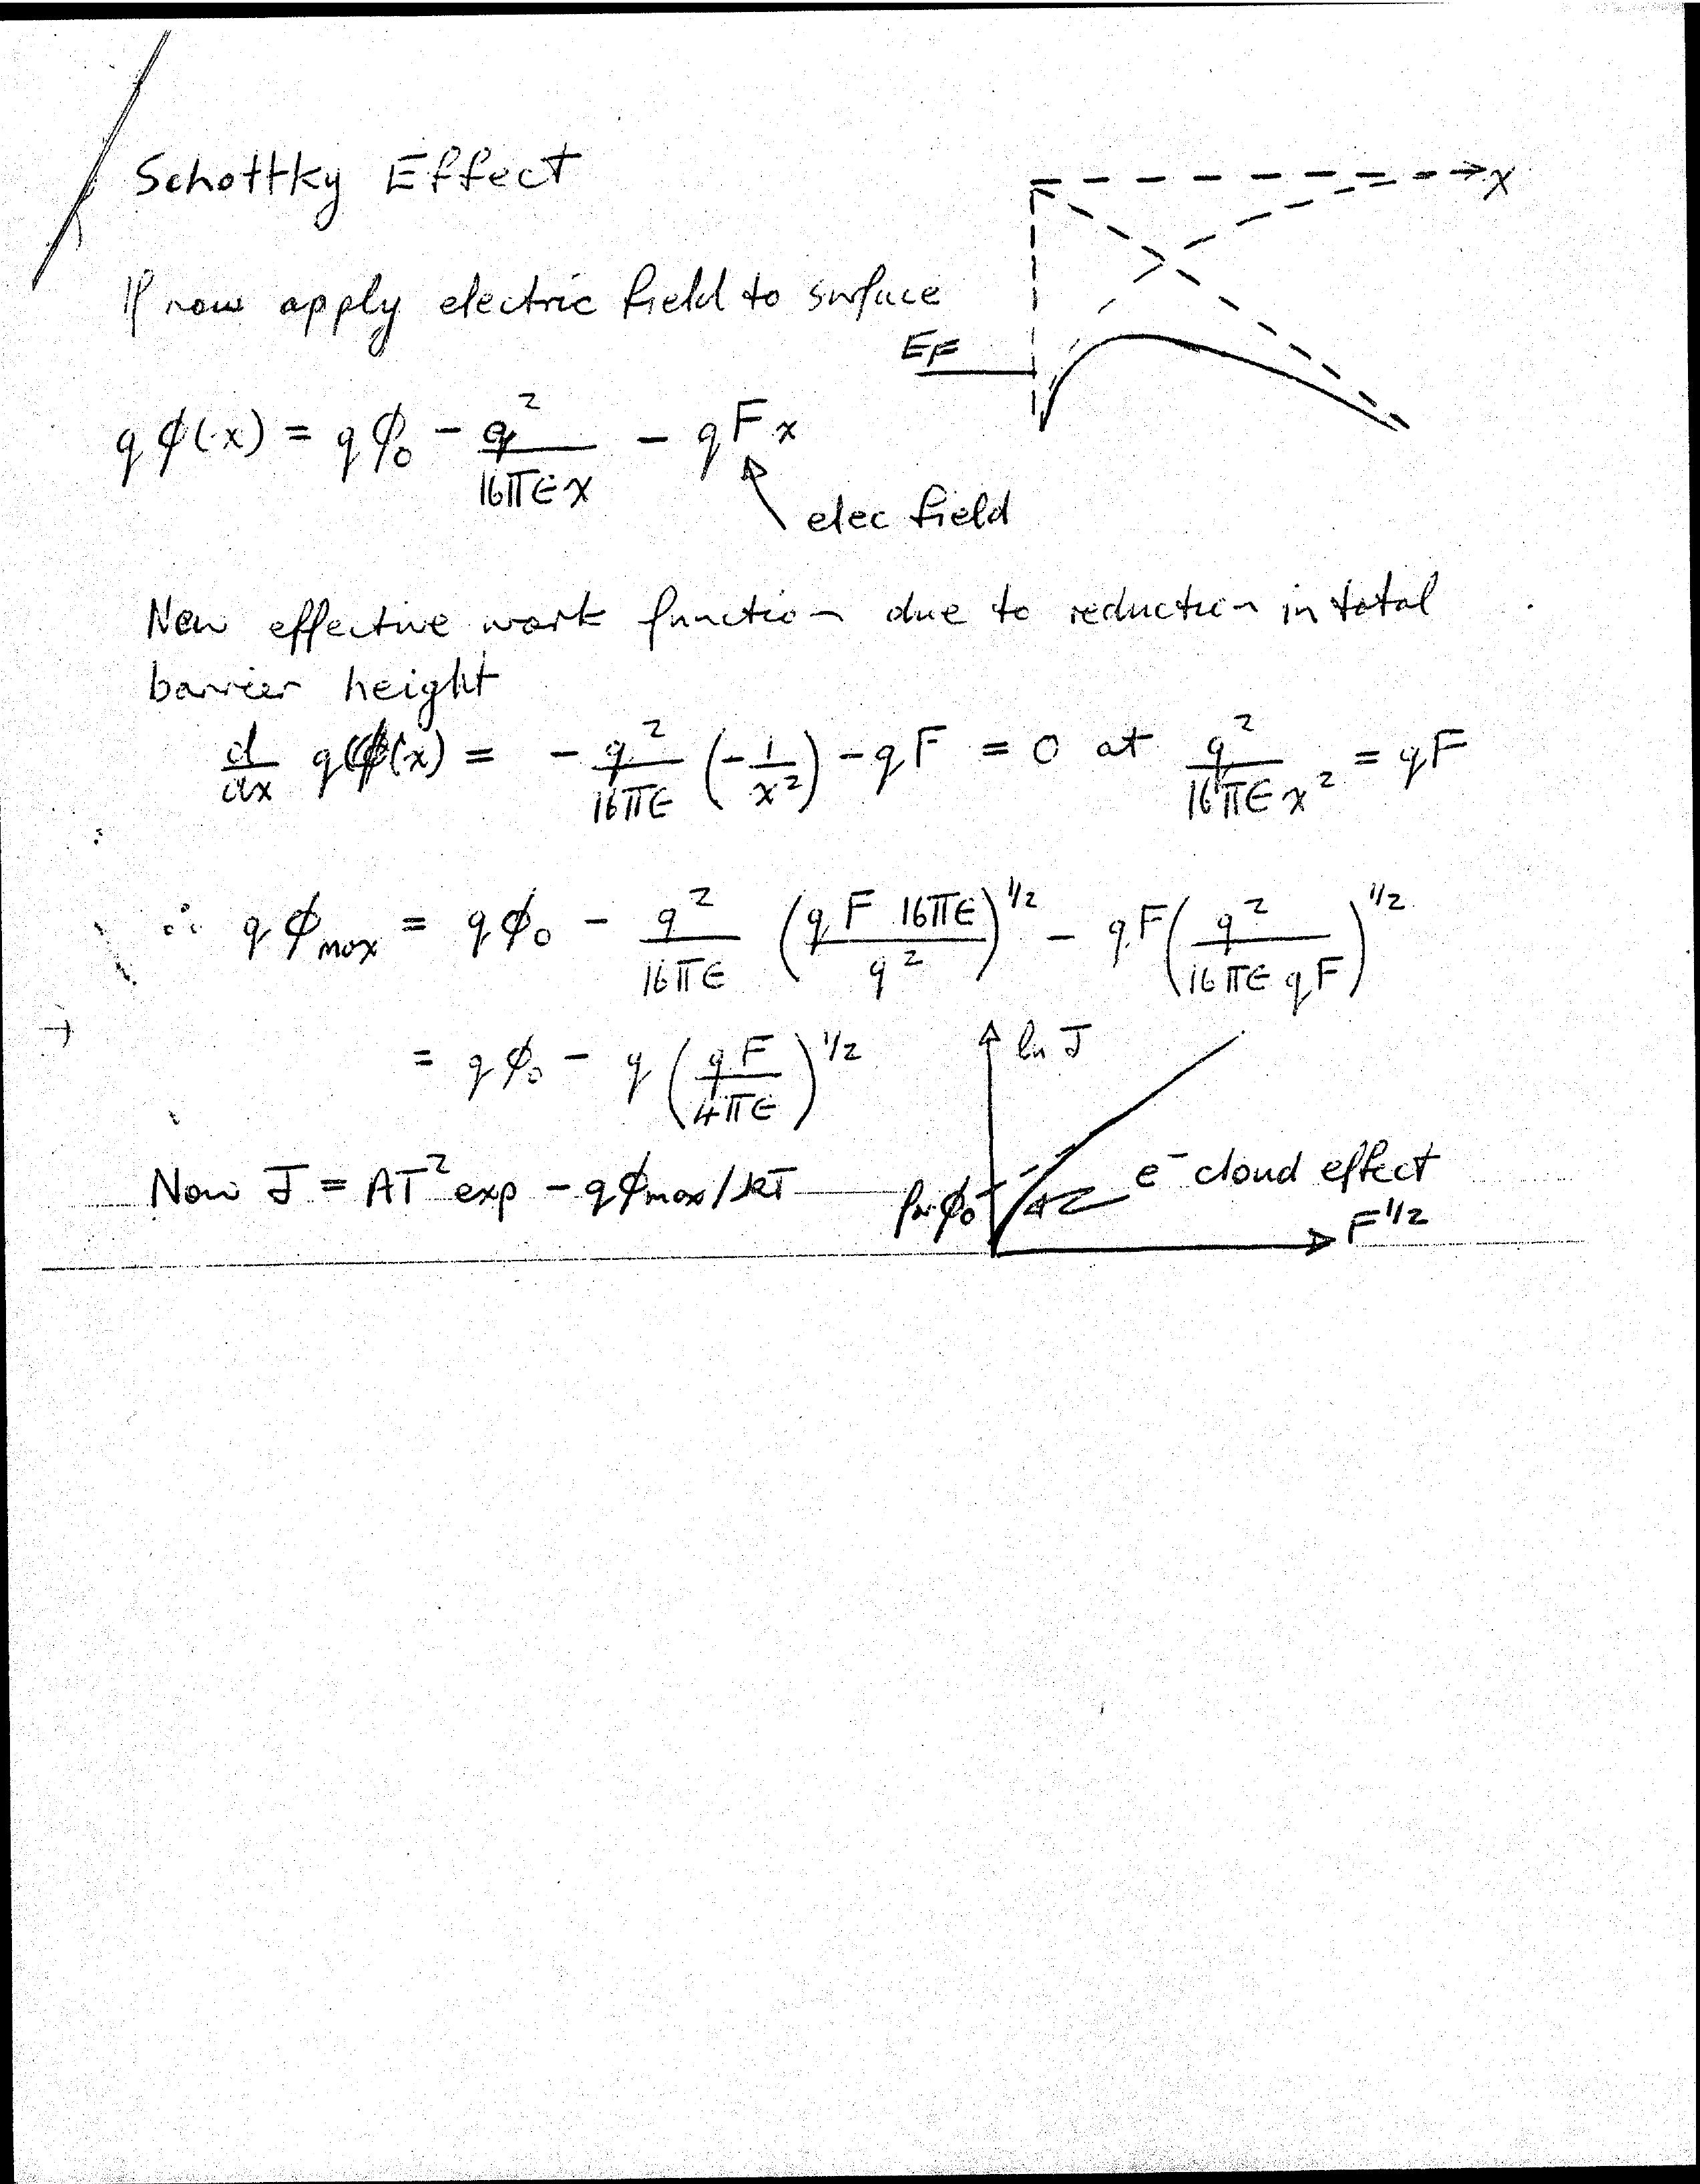 Schottky Effect
x
If now apply electric field to surface
EF
q ϕ(x) = q ϕ₀ - q² / 16πϵx - q F x
elec field
New effective work function due to reduction in total
barrier height
d/dx qϕ(x) = - q²/16πϵ (-1/x²) - qF = 0 at q²/16πϵx² = qF
∴ q ϕmax = qϕ₀ - q²/16πϵ (qF 16πϵ / q²)^1/2 - qF (q² / 16πϵ qF)^1/2
= qϕ₀ - q (qF / 4πϵ)^1/2
ln J
Now J = AT² exp - qϕmax/kT
e⁻ cloud effect
ϕ₀
F^1/2